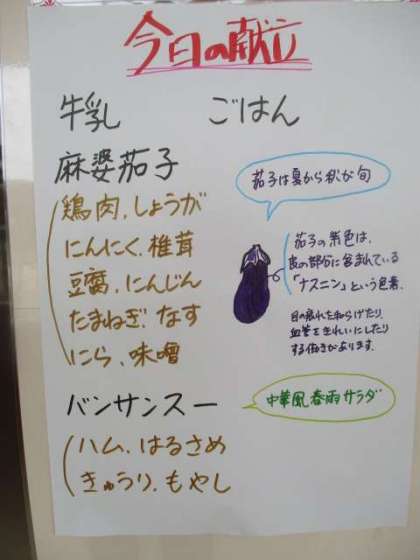 今日の献立
牛乳 ごはん
麻婆茄子
鶏肉、しょうが
にんにく、椎茸
豆腐、にんじん
たまねぎ、なす
にら、味噌
茄子は夏から秋が旬
茄子の紫色は、
皮の部分に含まれている
「ナスニン」という色素。
目の疲れを和らげたり、
血管をきれいにしたり
する働きがあります。
バンサンスー
中華風春雨サラダ
ハム、はるさめ
きゅうり、もやし